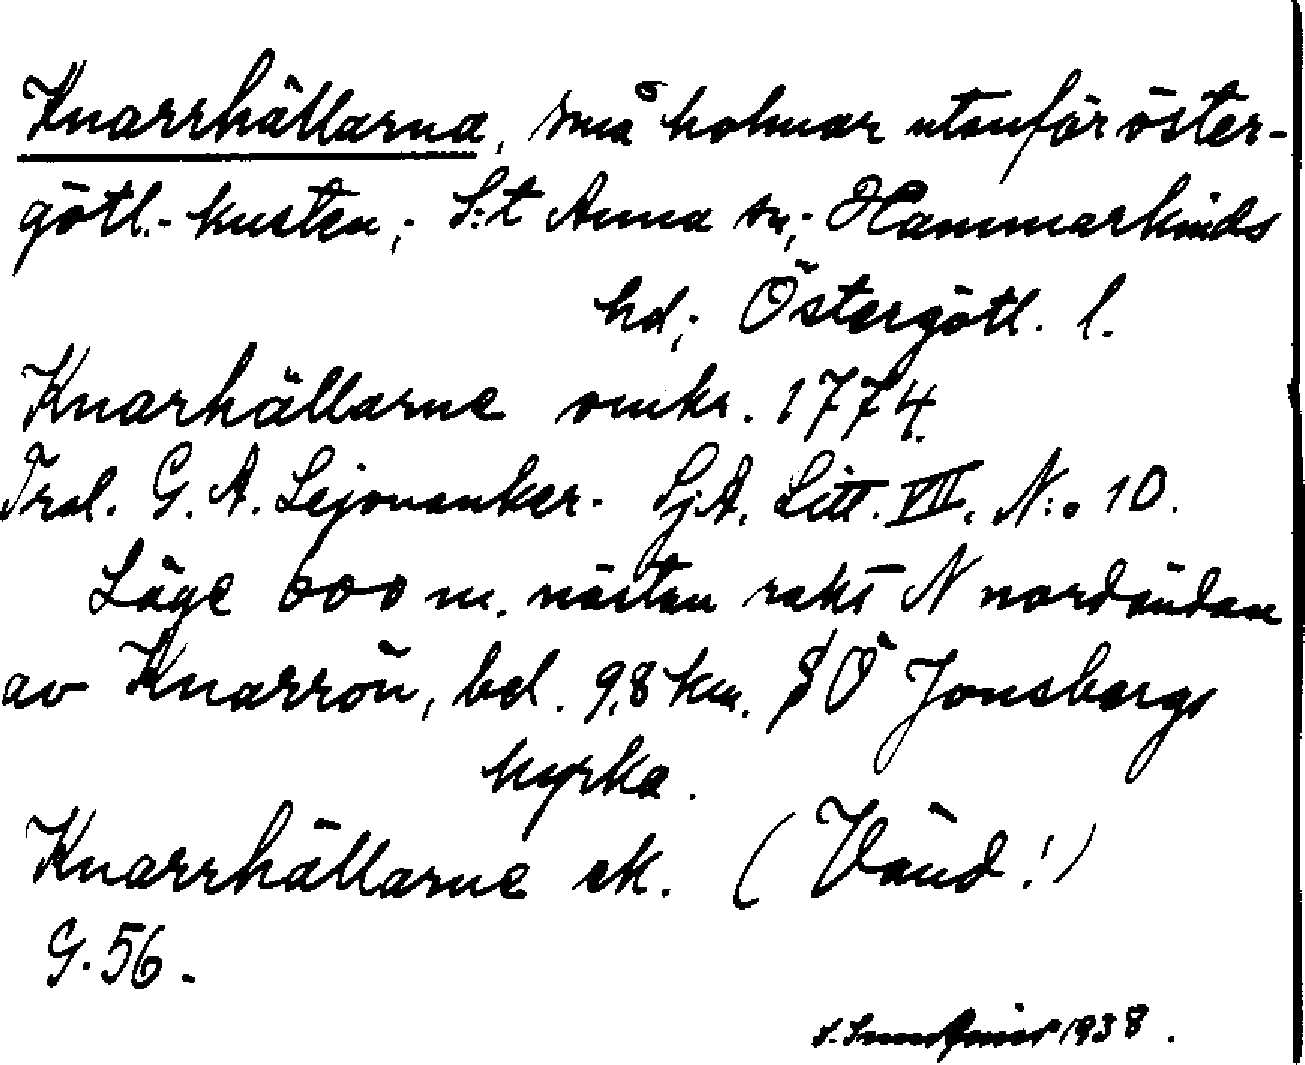 Knarrhällarna, små holmar utanför öster-
götl.- kusten,; S:t Anna sn,; Hammarkinds
hd,; Östergötl. l.
Knarhällarne omkr. 1774.
Trol. G. A. Lejonanker. Sj.A. Litt. VII. N:o 10.
Läge 600 m. nästan rakt N nordändan
av Knarrön, bel. 9,8 km. SO Jonsbergs
kyrka.
Knarrhällarne ek. (Vänd!)
G. 56.
1938.